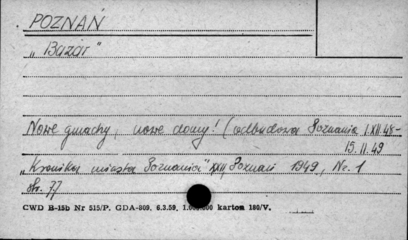 POZNAŃ
„Bazar"
Nowe gmachy, nowe domy! (odbudowa Poznania 1.XII.48-
15.II.49
„Kronika miasta Poznania" XXII Poznań 1949, Nr. 1
str. 77
CWD B-15b Nr 515/P. GDA-809. 6.3.50, 1.000.000 kartom 180/V.